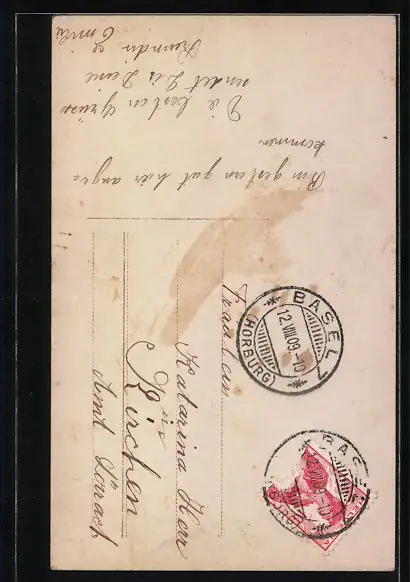 Bin gestern gut hier ange=
kommen
Die besten Grüsse
sendet Dir Deine
Freundin
Emilie
BASEL
12.VIII.09.-10
(HORBURG)
BASEL
Fräulein
Katarina Herr
in
Kirchen
Amt Lörrach